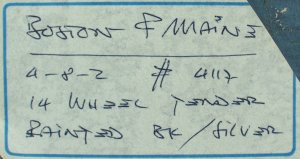 BOSTON & MAINE
4-8-2 # 4117
14 WHEEL TENDER
PAINTED BK/SILVER